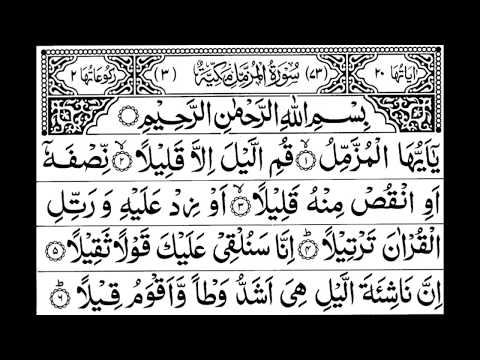 اٰيَاتُهَا ٢٠ (٧٣) سُوْرَةُ الْمُزَّمِّلِ مَكِّيَّةٌ (٣) رُكُوْعَاتُهَا ٢
بِسْمِ اللهِ الرَّحْمٰنِ الرَّحِيْمِ
يٰۤاَيُّهَا الْمُزَّمِّلُ ۙ﴿١﴾ قُمِ الَّيْلَ اِلَّا قَلِيْلًا ۙ﴿٢﴾ نِّصْفَهٗۤ
اَوِ انْقُصْ مِنْهُ قَلِيْلًا ۙ﴿٣﴾ اَوْ زِدْ عَلَيْهِ وَ رَتِّلِ
الْقُرْاٰنَ تَرْتِيْلًا ؕ﴿٤﴾ اِنَّا سَنُلْقِيْ عَلَيْكَ قَوْلًا ثَقِيْلًا ﴿٥﴾
اِنَّ نَاشِئَةَ الَّيْلِ هِيَ اَشَدُّ وَطْاً وَّاَقْوَمُ قِيْلًا ؕ﴿٦﴾